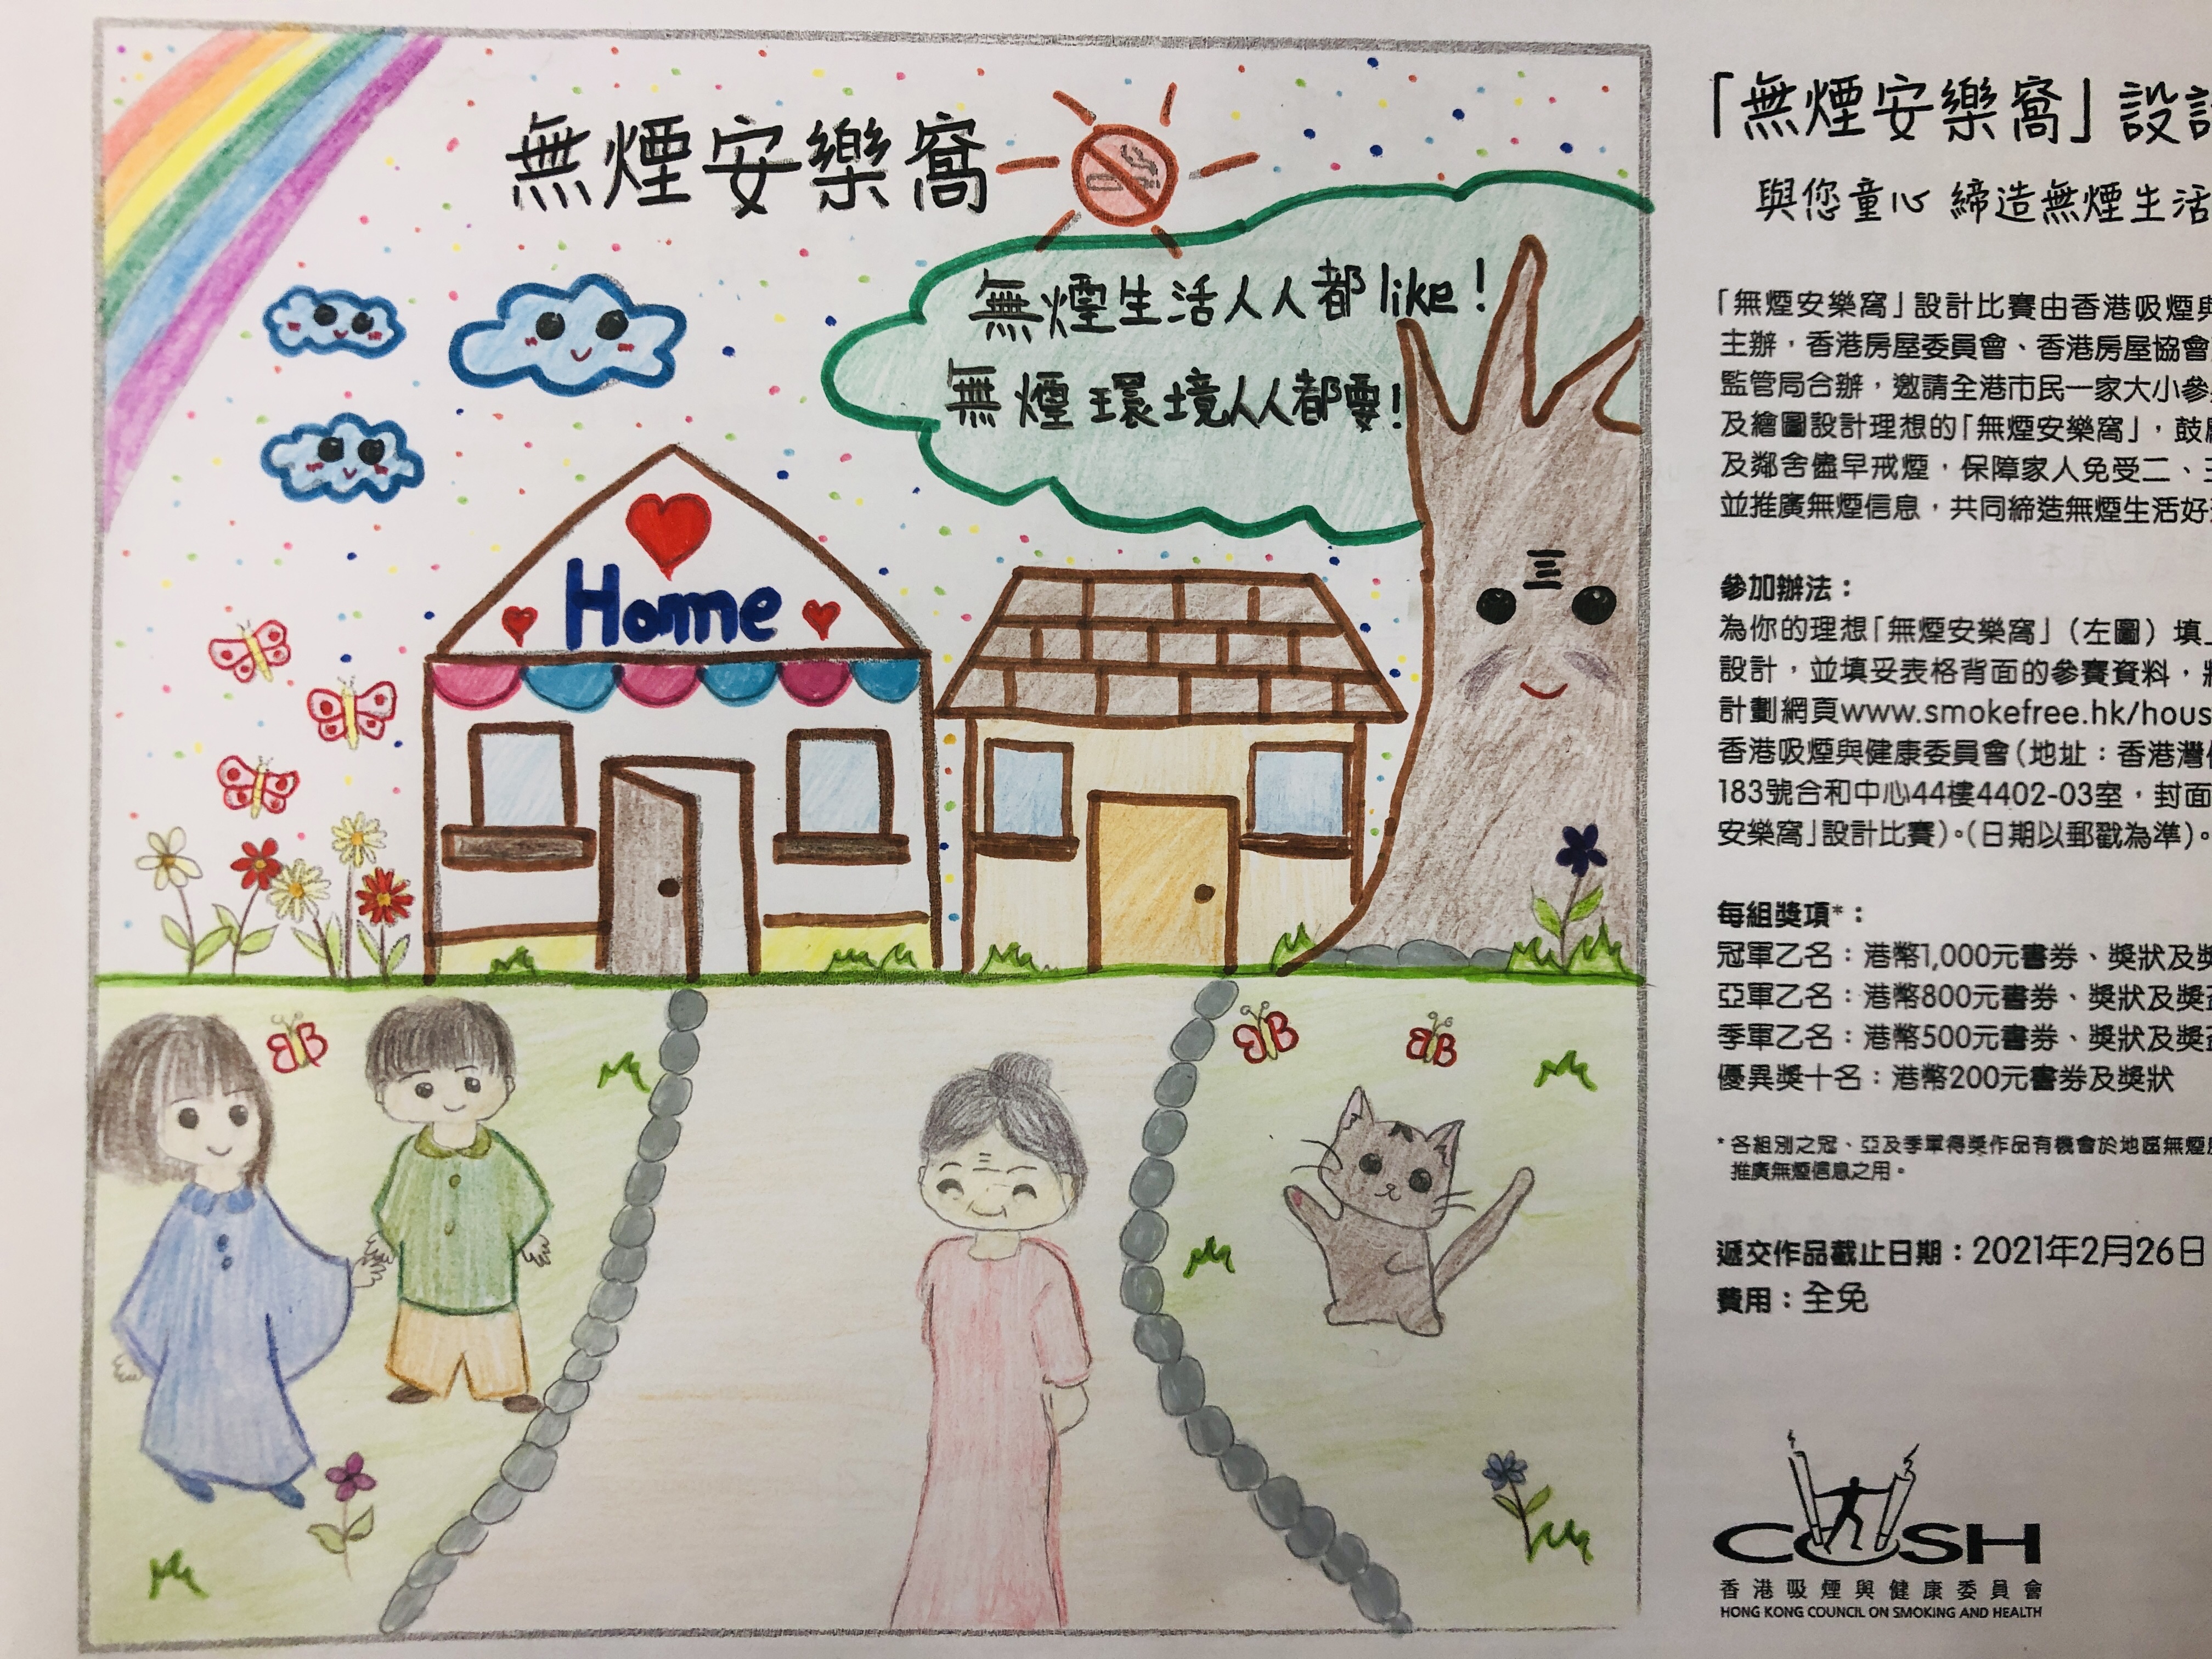 無煙安樂窩
無煙生活人人都like!
無煙環境人人都要!
Home
「無煙安樂窩」設
與您童心 締造無煙生活
「無煙安樂窩」設計比賽由香港吸煙與
主辦，香港房屋委員會、香港房屋協會
監管局合辦，邀請全港市民一家大小參
及繪圖設計理想的「無煙安樂窩」，鼓
及鄰舍儘早戒煙，保障家人免受二、
並推廣無煙信息，共同締造無煙生活好
參加辦法：
為你的理想「無煙安樂窩」（左圖）填
設計，並填妥表格背面的參賽資料，
計劃網頁www.smokefree.hk/hous
香港吸煙與健康委員會（地址：香港灣
183號合和中心44樓4402-03室，封面
安樂窩」設計比賽）。（日期以郵戳為準）。
每組獎項*：
冠軍乙名：港幣1,000元書券、獎狀及
亞軍乙名：港幣800元書券、獎狀及獎
季軍乙名：港幣500元書券、獎狀及獎
優異獎十名：港幣200元書券及獎狀
*各組別之冠、亞及季軍得獎作品有機會於地區無煙
推廣無煙信息之用。
遞交作品截止日期：2021年2月26日
費用：全免
COSH
香港吸煙與健康委員會
HONG KONG COUNCIL ON SMOKING AND HEALTH